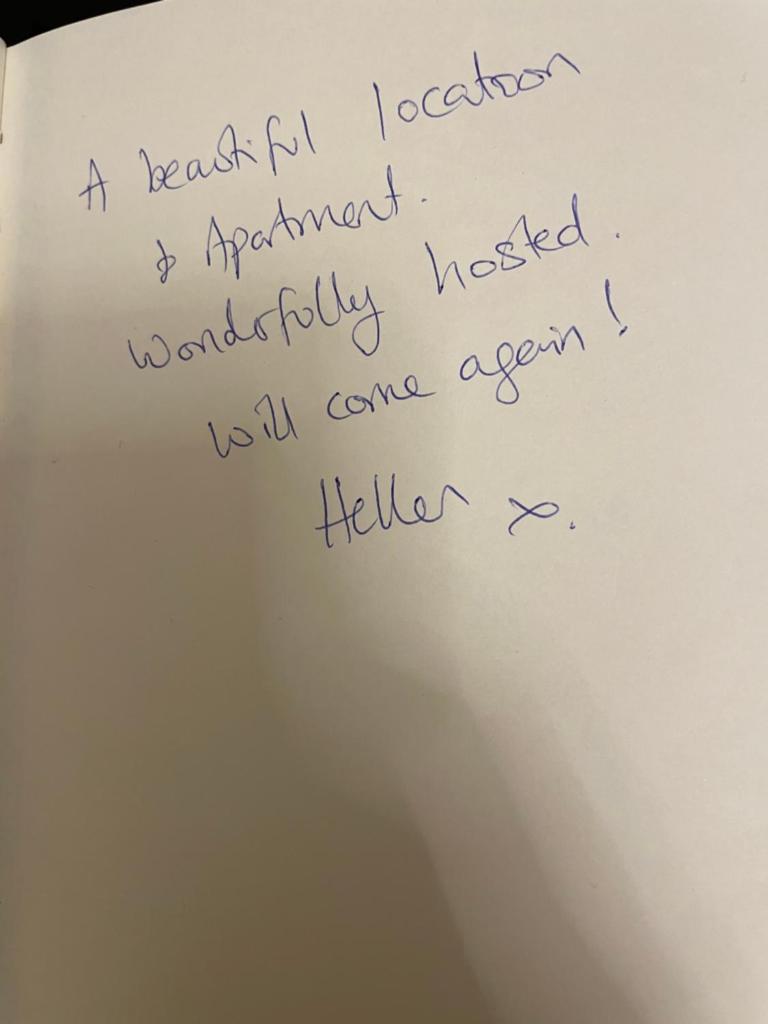 A beautiful location
& Apartment.
Wonderfully hosted.
will come again!
Heller x.